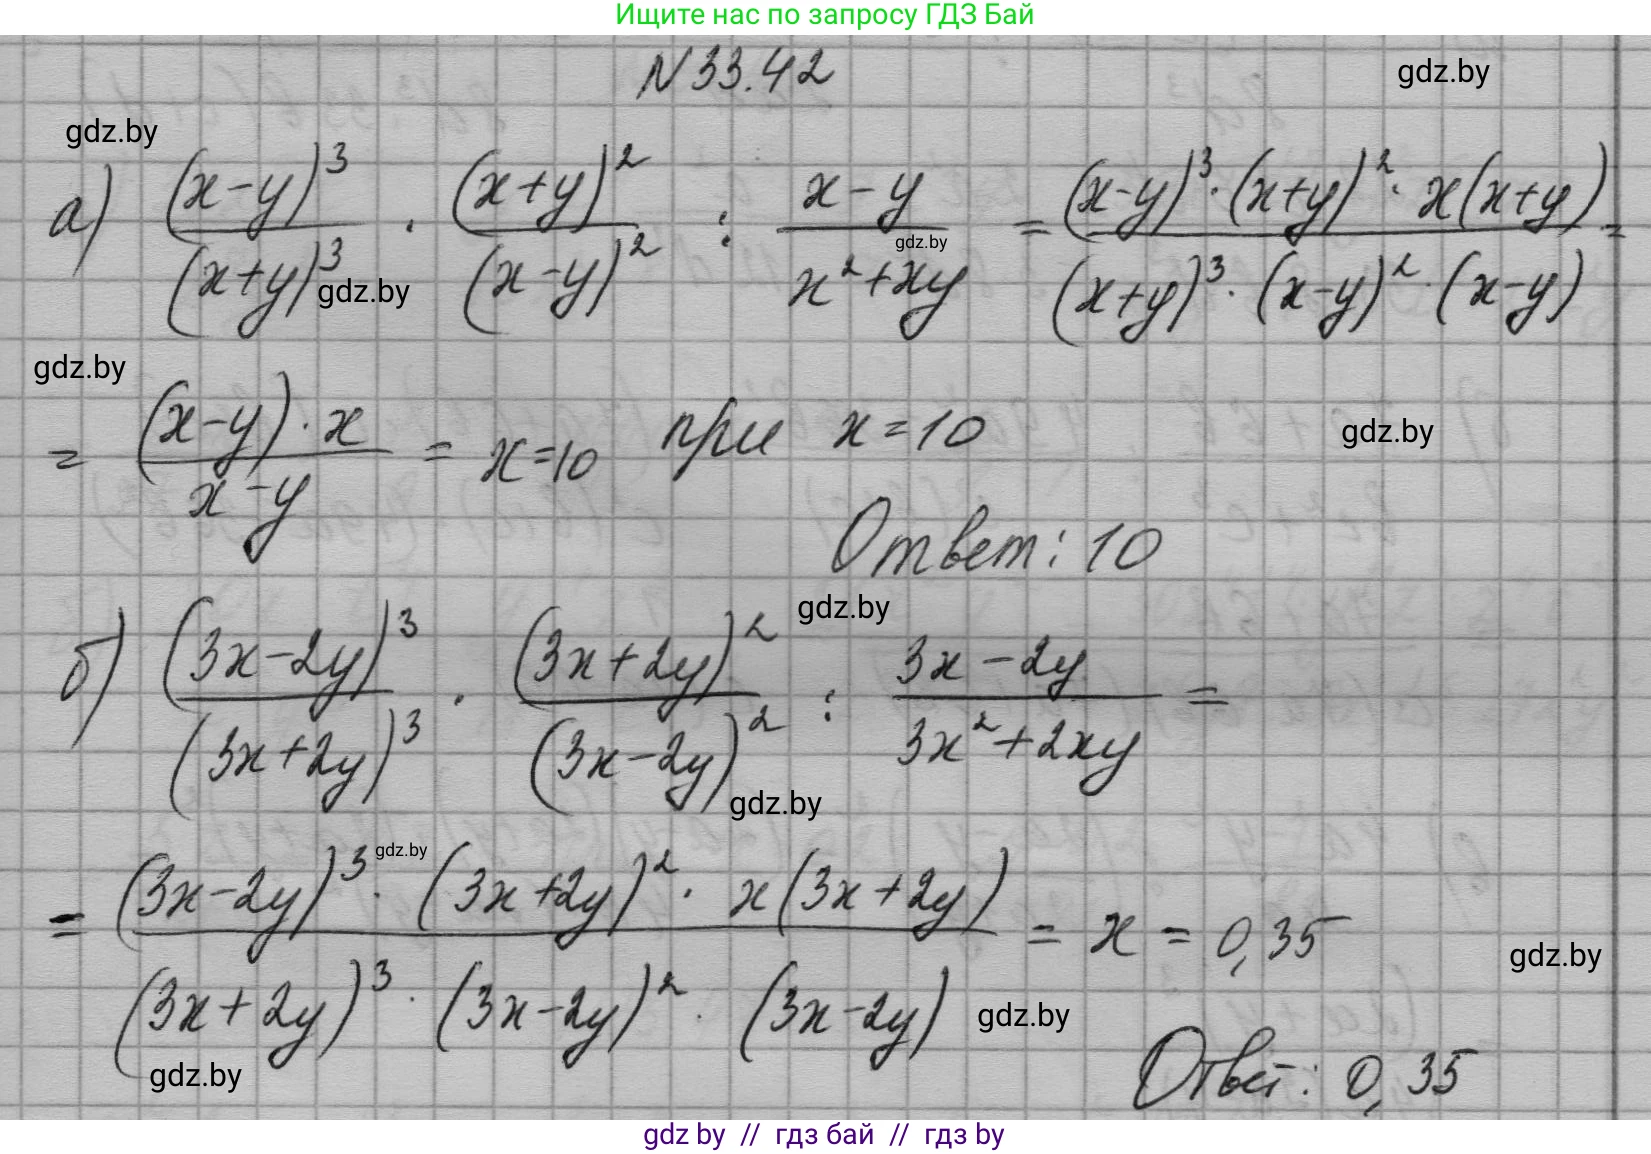 Ищите нас по запросу ГДЗ Бай
N 33.42
gdz.by
gdz.by
а) (x-y)^3/(x+y)^3 · (x+y)^2/(x-y)^2 : (x-y)/(x^2+xy) = ((x-y)^3·(x+y)^2·x(x+y))/((x+y)^3·(x-y)^2·(x-y)) =
gdz.by
gdz.by
gdz.by
= ((x-y)·x)/(x-y) = x=10 при x=10
gdz.by
Ответ: 10
gdz.by
б) (3x-2y)^3/(3x+2y)^3 · (3x+2y)^2/(3x-2y)^2 : (3x-2y)/(3x^2+2xy) =
gdz.by
gdz.by
= ((3x-2y)^3·(3x+2y)^2·x(3x+2y))/((3x+2y)^3·(3x-2y)^2·(3x-2y)) = x = 0,35
gdz.by
gdz.by
gdz.by
Ответ: 0,35
gdz by // гдз бай // гдз by